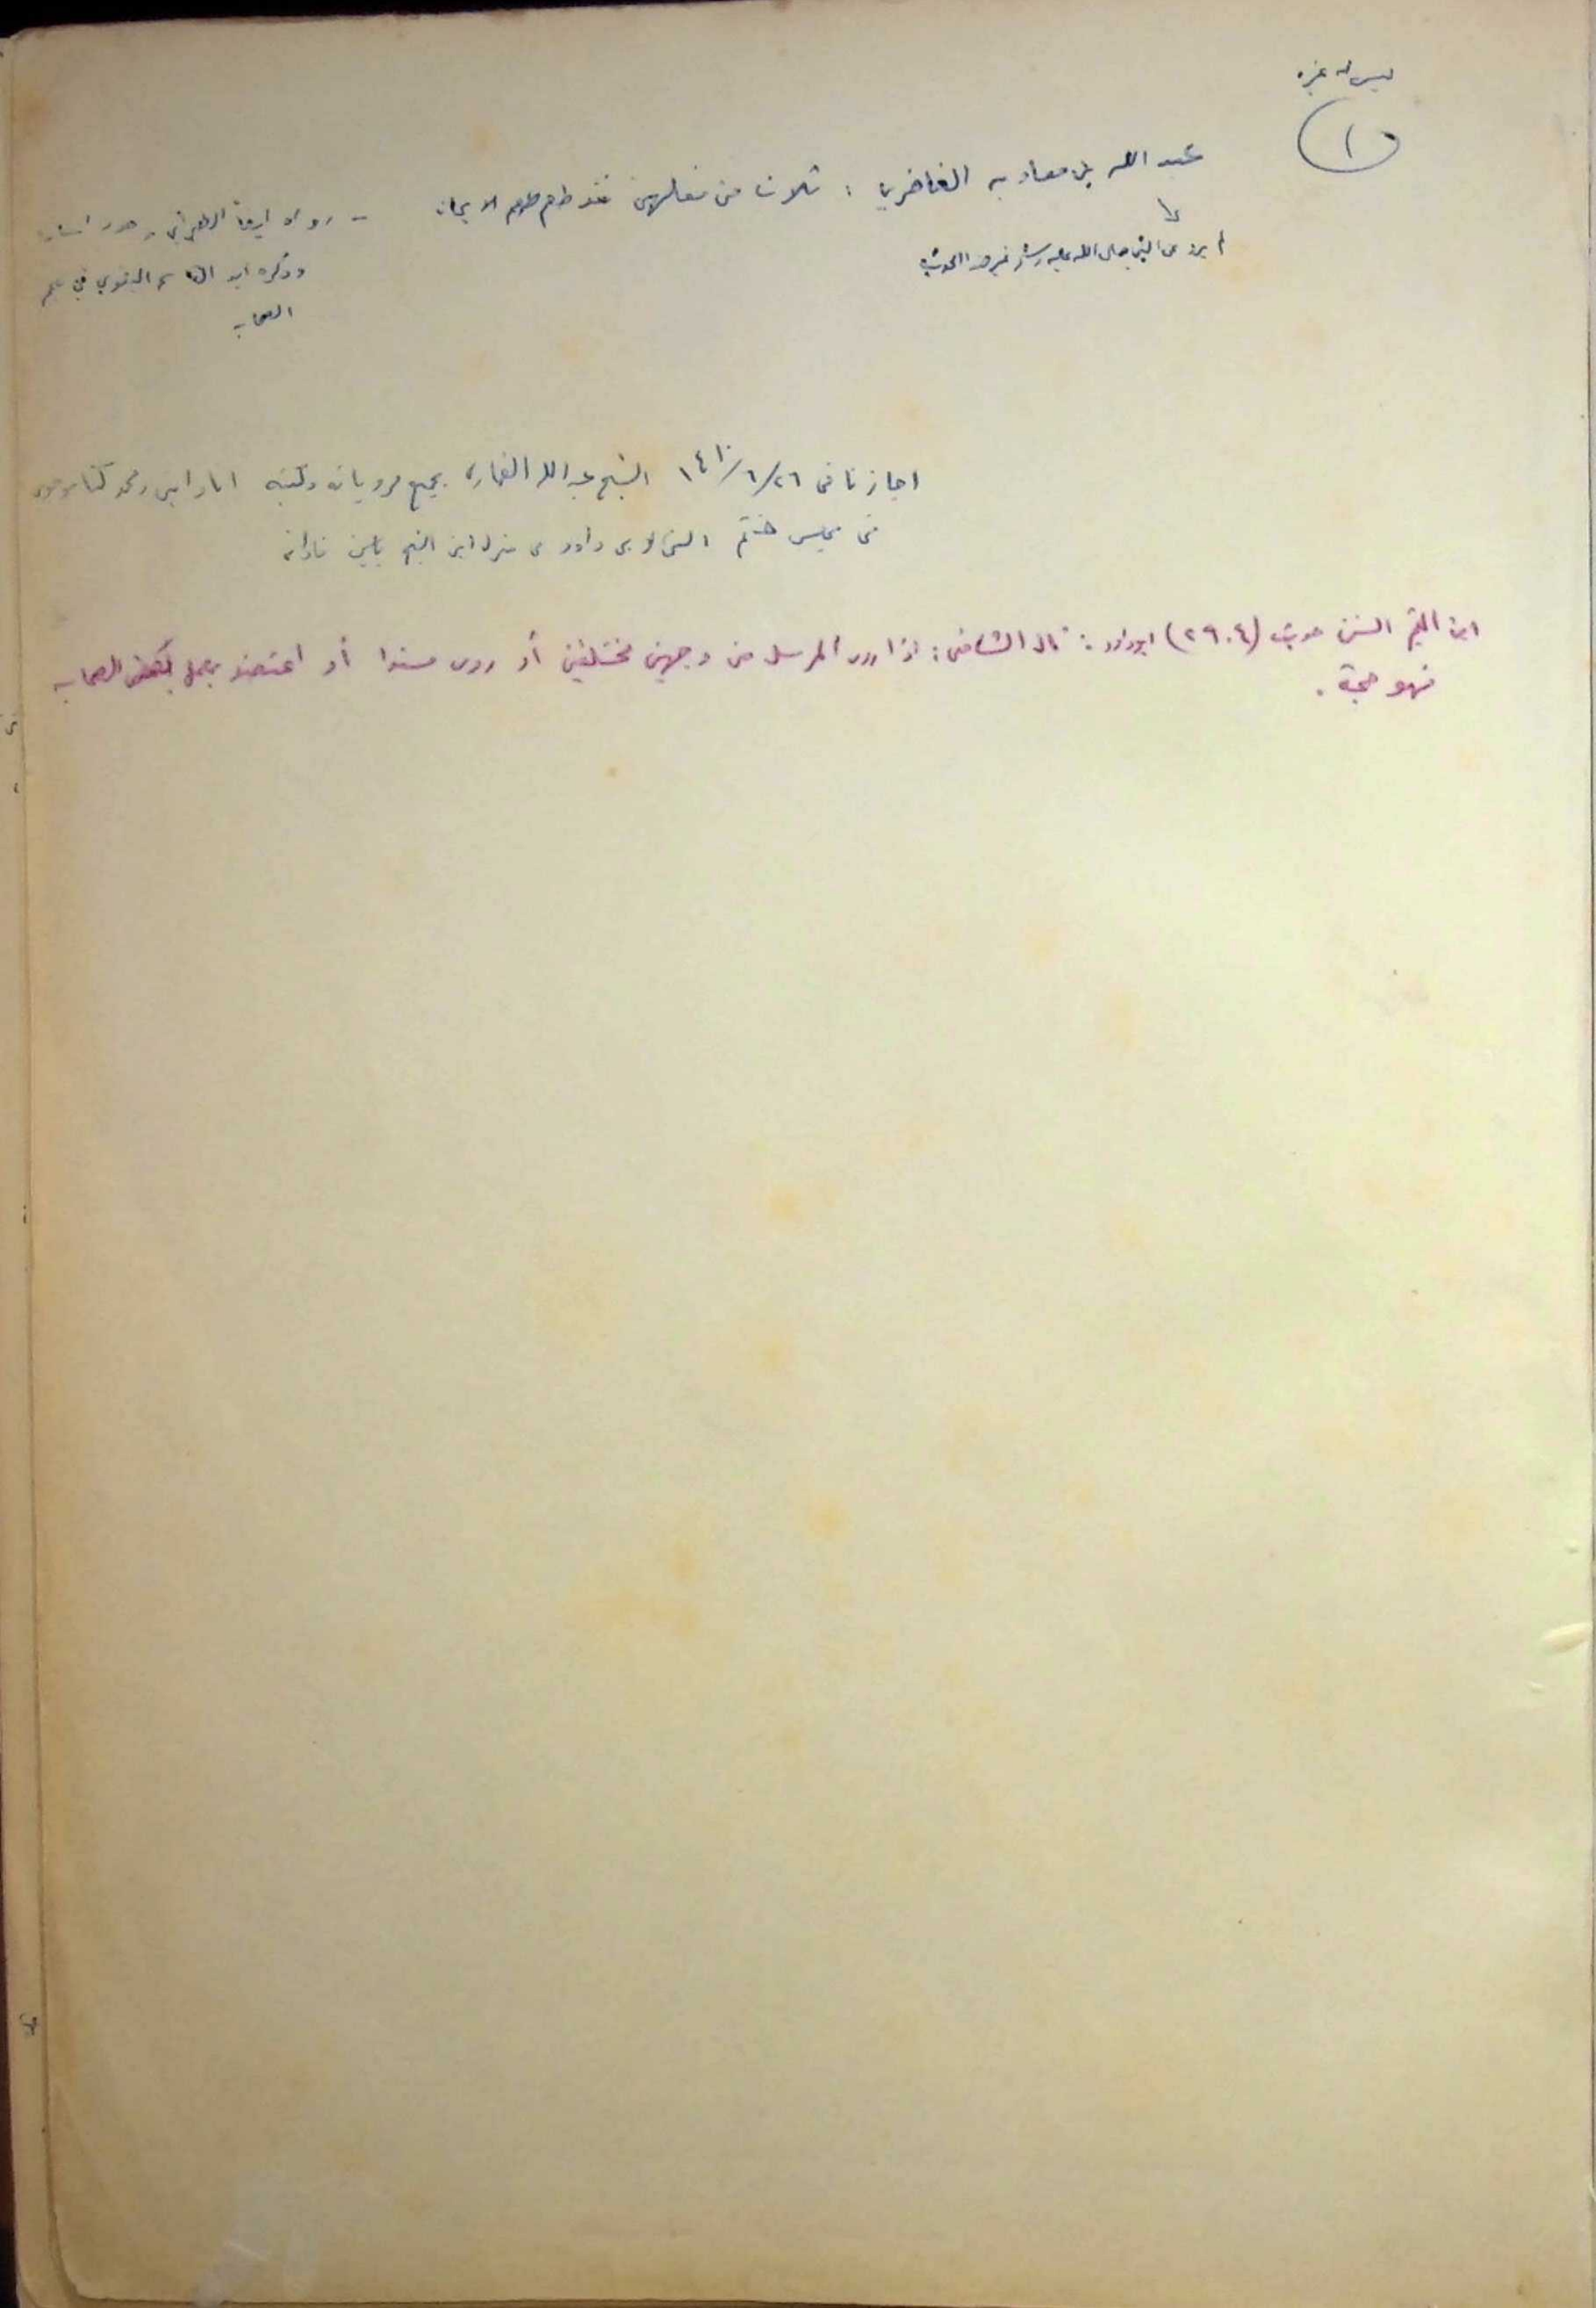 ليس له غيره
١
عبد الله بن معاوية الغاضري : ثلاث من فعلهن فقد طعم طعم الايمان
لم يرو عن النبي صلى الله عليه وسلم غير هذا الحديث
- رواه ايضاً الطبراني وجود اسنادها
وذكره ابو القاسم البغوي في معجم
الصحابة
اجازنا في ٢٦/٦/١٤١٠ الشيخ عبد الله الغماري بجميع مروياته وكتبه انا وابني ومحمد كنا موجودين
في مجلس ختم السنن لابي داود في منزل ابن الشيخ ياسين فادانى
ابن القيم السنن حديث (٢٩٠٤) ابوداود : قال الشافعي : اذا روى المرسل من وجهين مختلفين أو روى مسندا أو اعتضد بعمل بعض الصحابه
فهو حجة .